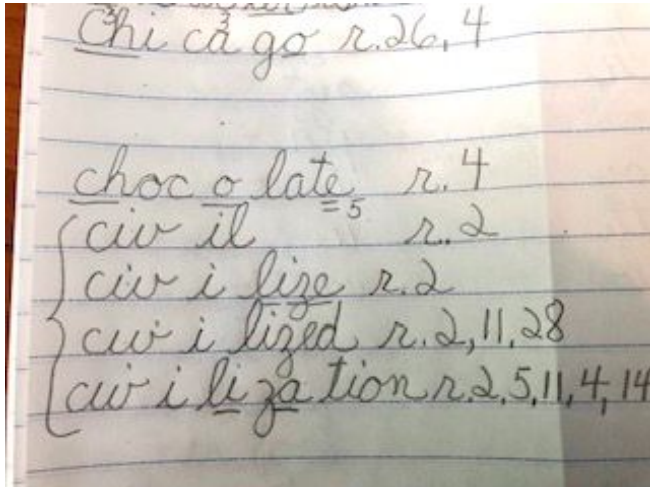 Chi ca go r. 26, 4
choc o late 5 r. 4
civ il r. 2
civ i lize r. 2
civ i lized r. 2, 11, 28
civ i li za tion r. 2, 5, 11, 4, 14